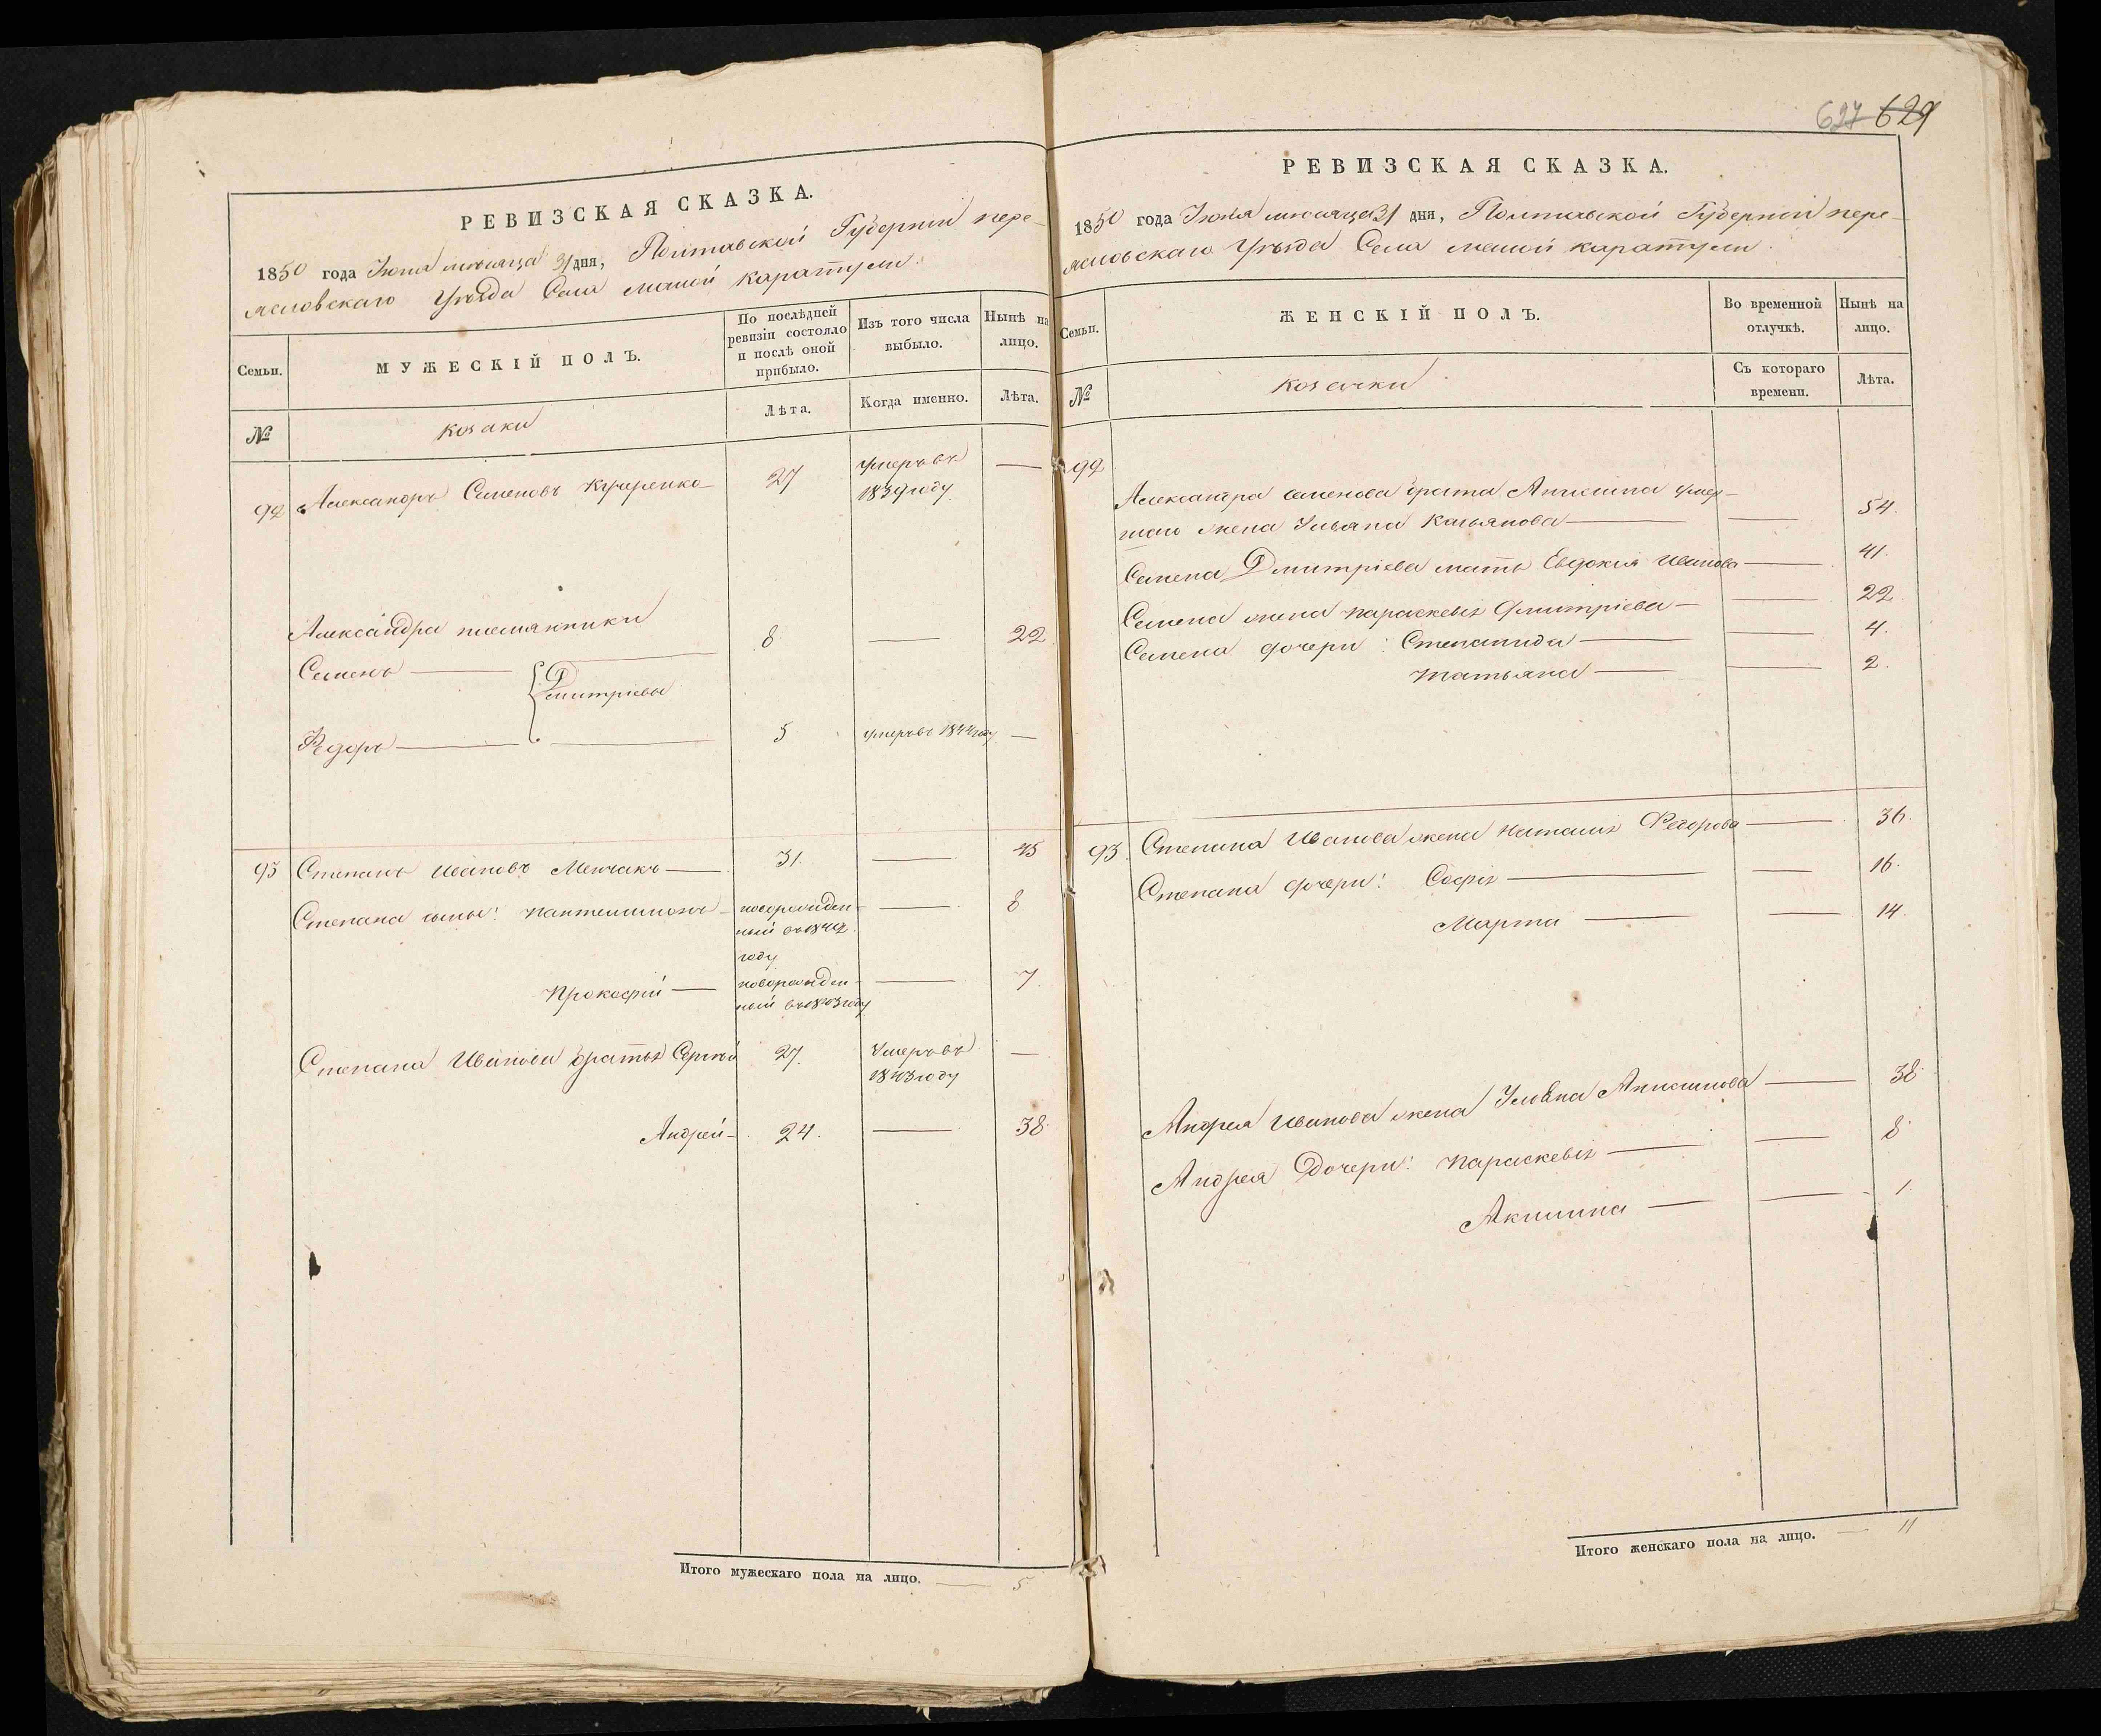 РЕВИЗСКАЯ СКАЗКА.
1850 года Июля месяца 31 дня, Полтавской Губернии пере-
яславскаго Уѣзда Села малой каратули.
Семьи.
МУЖЕСКІЙ ПОЛЪ.
По послѣдней
ревизіи состояло
и послѣ оной
прибыло.
Изъ того числа
выбыло.
Нынѣ на
лицо.
№
козаки
Лѣта.
Когда именно.
Лѣта.
92 Александръ Семеновъ Кучеренко 27 умеръ въ —
1839 году
Александра племянники
Семенъ — 8. — 22.
Дмитріевы
Ѳедоръ — 5 умеръ въ 1844 году —
93 Степанъ Ивановъ Менчакъ — 31. — 45
Степана сыны: Пантелимонъ — новорожден- — 8
ный въ 1842
году
Прокофій — новорожден- — 7.
ный въ 1843 году
Степана Иванова братья Сергѣй 27. Умеръ въ —
1843 году
Андрей — 24. — 38.
Итого мужескаго пола на лицо. — 5
627 629
РЕВИЗСКАЯ СКАЗКА.
1850 года Июля месяца 31 дня, Полтавской Губерніи пере-
яславскаго Уѣзда Села малой каратули.
Семьи.
ЖЕНСКІЙ ПОЛЪ.
Во временной
отлучкѣ.
Нынѣ на
лицо.
№
козачки
Съ котораго
времени.
Лѣта.
92
Александра Семенова брата умер-
шаго жена Ульяна — — 54.
Семена Дмитріева мать Евдокия Иванова — 41.
Семена жена Параскевія Дмитріева — — 22.
Семена дочери: Степанида — — 4.
Татьяна — — 2.
93. Степана Иванова жена Наталія Федорова — 36.
Степана дочери: Софія — — 16.
Марта — — 14.
Андрея Иванова жена Ульяна — 38.
Андрея Дочери: Параскевія — — 8.
Акилина — — 1.
Итого женскаго пола на лицо. — 11